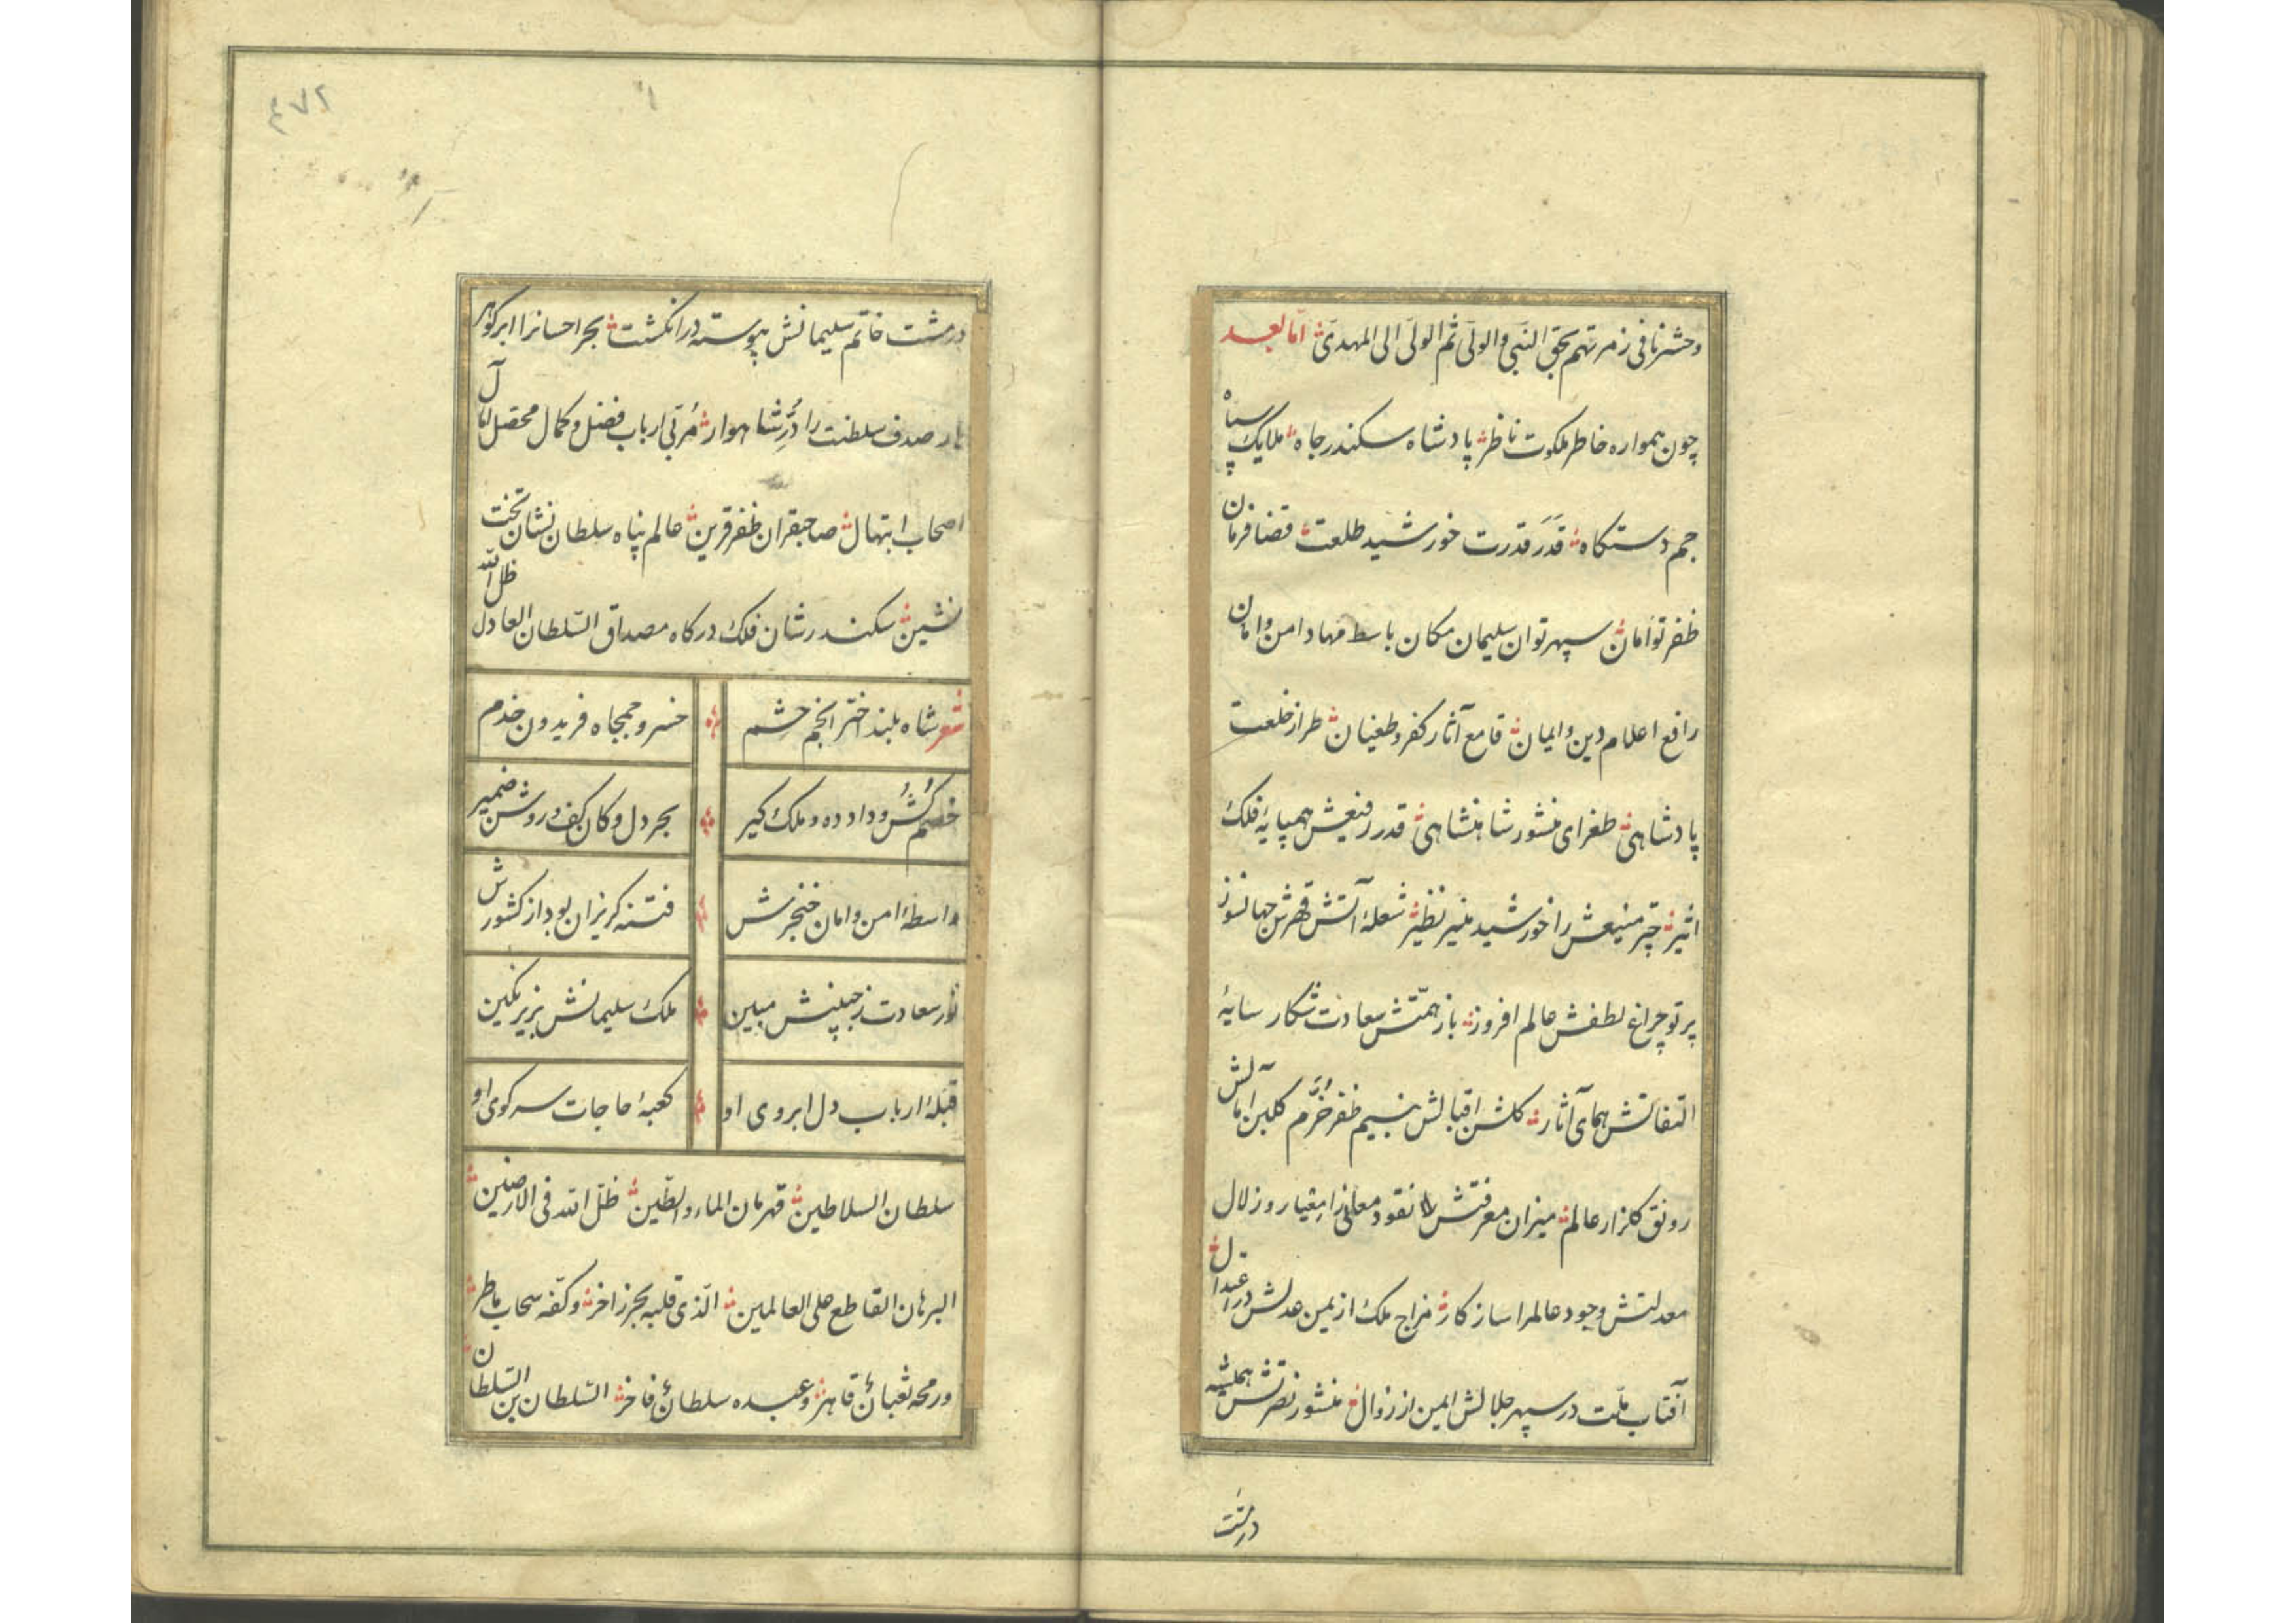 وحشرنا فی زمرتهم بحق النبی والولی ثم الولی الی المهدی اما بعد
چون همواره خاطر ملکوت ناظر پادشاه سکندر جاه ملایک سپاه
جم دستکاه قدر قدرت خورشید طلعت قضا فرمان
ظفر توأمان سپهر توان سلیمان مکان باسط مهاد امن و امان
رافع اعلام دین و ایمان قامع آثار کفر و طغیان طراز خلعت
پادشاهی طغرای منشور شاهنشاهی قدر رفیعش همپایهٔ فلک
اثیر چتر منیعش را خورشید منیر نظیر شعلهٔ آتش قهرش جهانسوز
پرتو چراغ لطفش عالم افروز باز همتش سعادت شکار سایهٔ
التفاتش همای آثار کلشن اقبالش بنسیم ظفر خرم کلبن آمالش
رونق کلزار عالم میزان معرفتش نقود معانی را معیار و زلال
معدلتش وجود عالمرا سازکار مزاج ملک از یمن عدلش در اعتدال
آفتاب ملت در سپهر جلالش ایمن از زوال منشور نصرتش همیشه
در مشت
۴۷۲
در مشت خاتم سلیمانش پیوسته در انکشت بحر احسانرا ابر کوهر
بار صدف سلطنت را در شاهوار مربی ارباب فضل و کمال محصل آمال
اصحاب ابتهال صاحبقران ظفر قرین عالم پناه سلطان نشان تخت
نشین سکندر شان فلک درکاه مصداق السلطان العادل ظل الله
شعر شاه بلند اختر انجم حشم خسرو جمجاه فریدون خدم
خصم کش و داد ده و ملک کیر بحر دل و کان کف و روشن ضمیر
واسطهٔ امن و امان خنجرش فتنه کریزان بود از کشورش
نور سعادت ز جبینش مبین ملک سلیمانش بزیر نکین
قبلهٔ ارباب دل ابروی او کعبهٔ حاجات سر کوی او
سلطان السلاطین قهرمان الماء والطین ظل الله فی الارضین
البرهان القاطع علی العالمین الذی قلبه بحر زاخر و کفه سحاب ماطر
ورمحه ثعبان قاهر وعبده سلطان فاخر السلطان بن السلطان